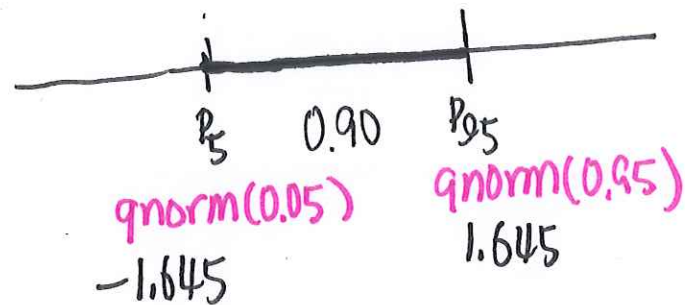 P5 0.90 P95
qnorm(0.05) qnorm(0.95)
-1.645 1.645